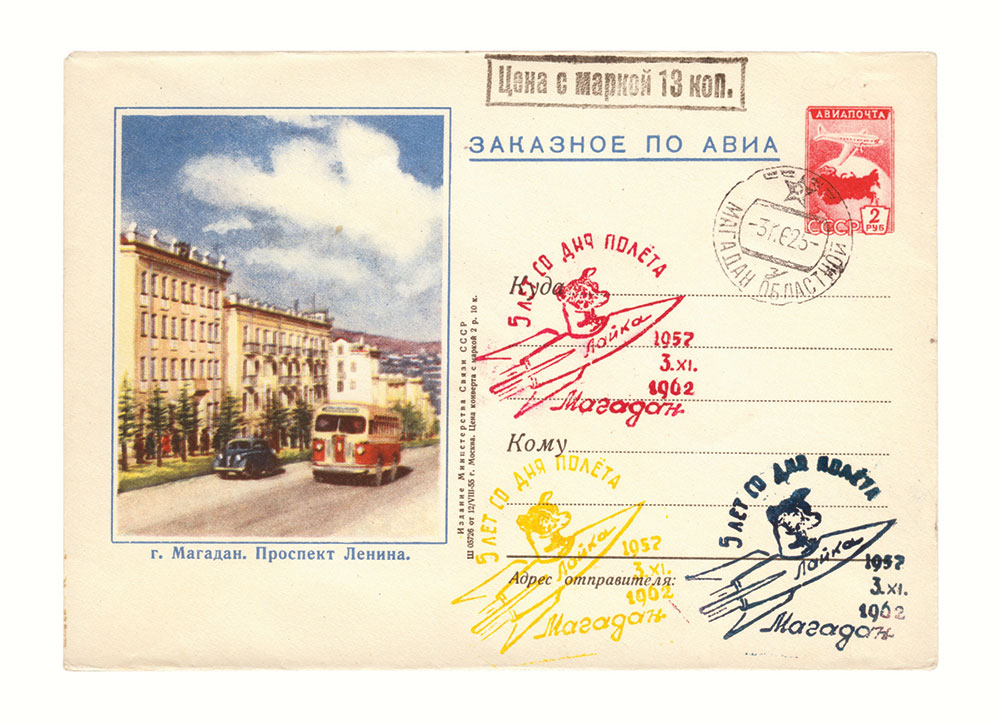 Цена с маркой 13 коп.
ЗАКАЗНОЕ ПО АВИА
АВИАПОЧТА
2
РУБ
СССР
МАГАДАН ОБЛАСТНОЙ
5 ЛЕТ СО ДНЯ ПОЛЁТА
Куда
Лайка
1957
3.XI.
1962
Магадан
Кому
5 ЛЕТ СО ДНЯ ПОЛЁТА
Лайка
1957
3.XI.
1962
Магадан
5 ЛЕТ СО ДНЯ ПОЛЁТА
Лайка
1957
3.XI.
1962
Магадан
Адрес отправителя:
Издание Министерства Связи СССР
Ш 03726 от 12/VIII-55 г. Москва. Цена конверта с маркой 2 р. 10 к.
г. Магадан. Проспект Ленина.